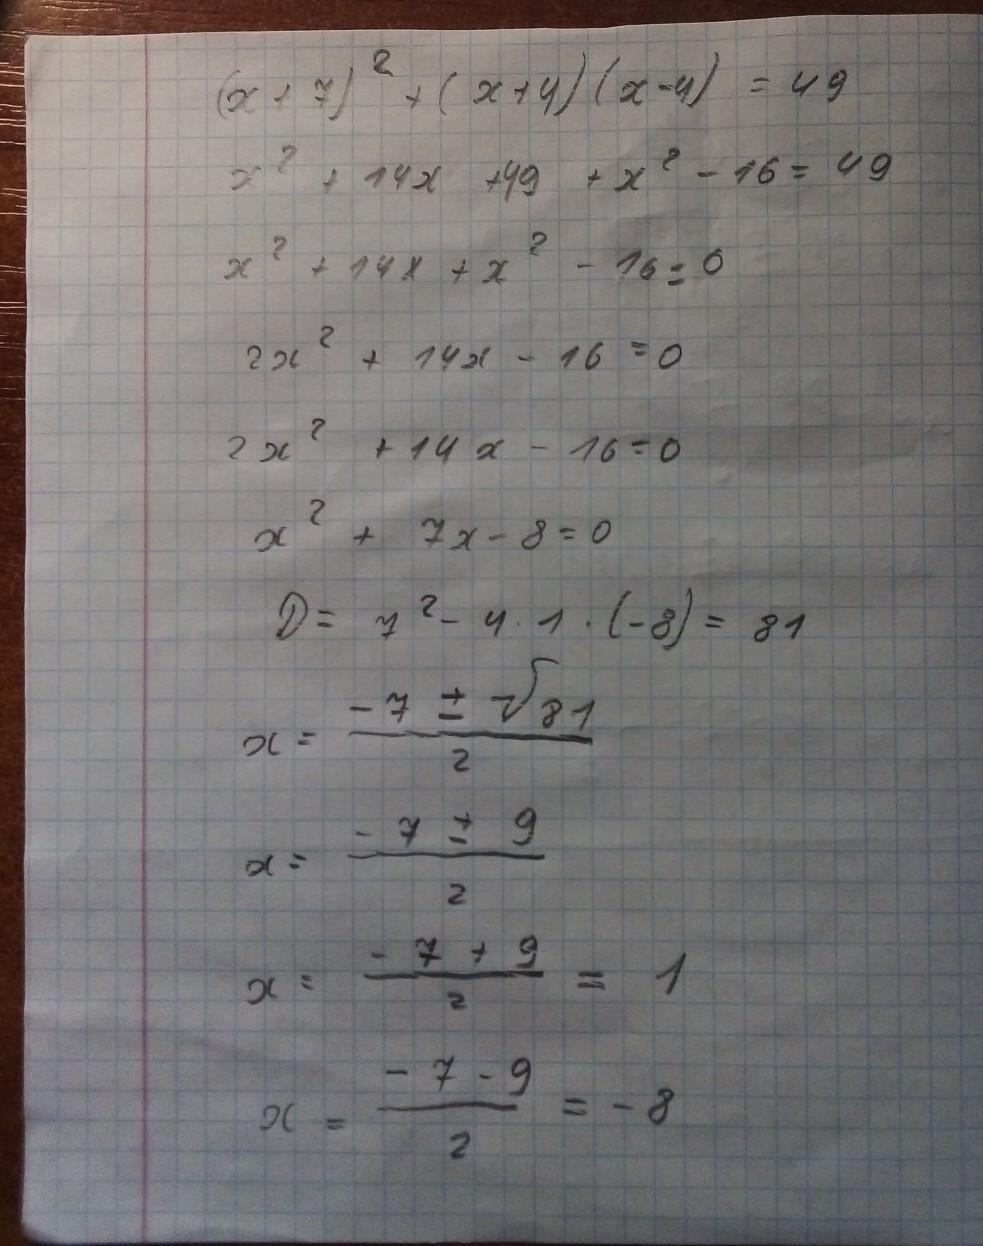 (x + 7)² + (x+4)(x-4) = 49
x² + 14x +49 + x² - 16 = 49
x² + 14x + x² - 16 = 0
2x² + 14x - 16 = 0
2x² + 14x - 16 = 0
x² + 7x - 8 = 0
D = 7² - 4 · 1 · (-8) = 81
x = (-7 ± √81)/2
x = (-7 ± 9)/2
x = (-7 + 9)/2 = 1
x = (-7 - 9)/2 = -8